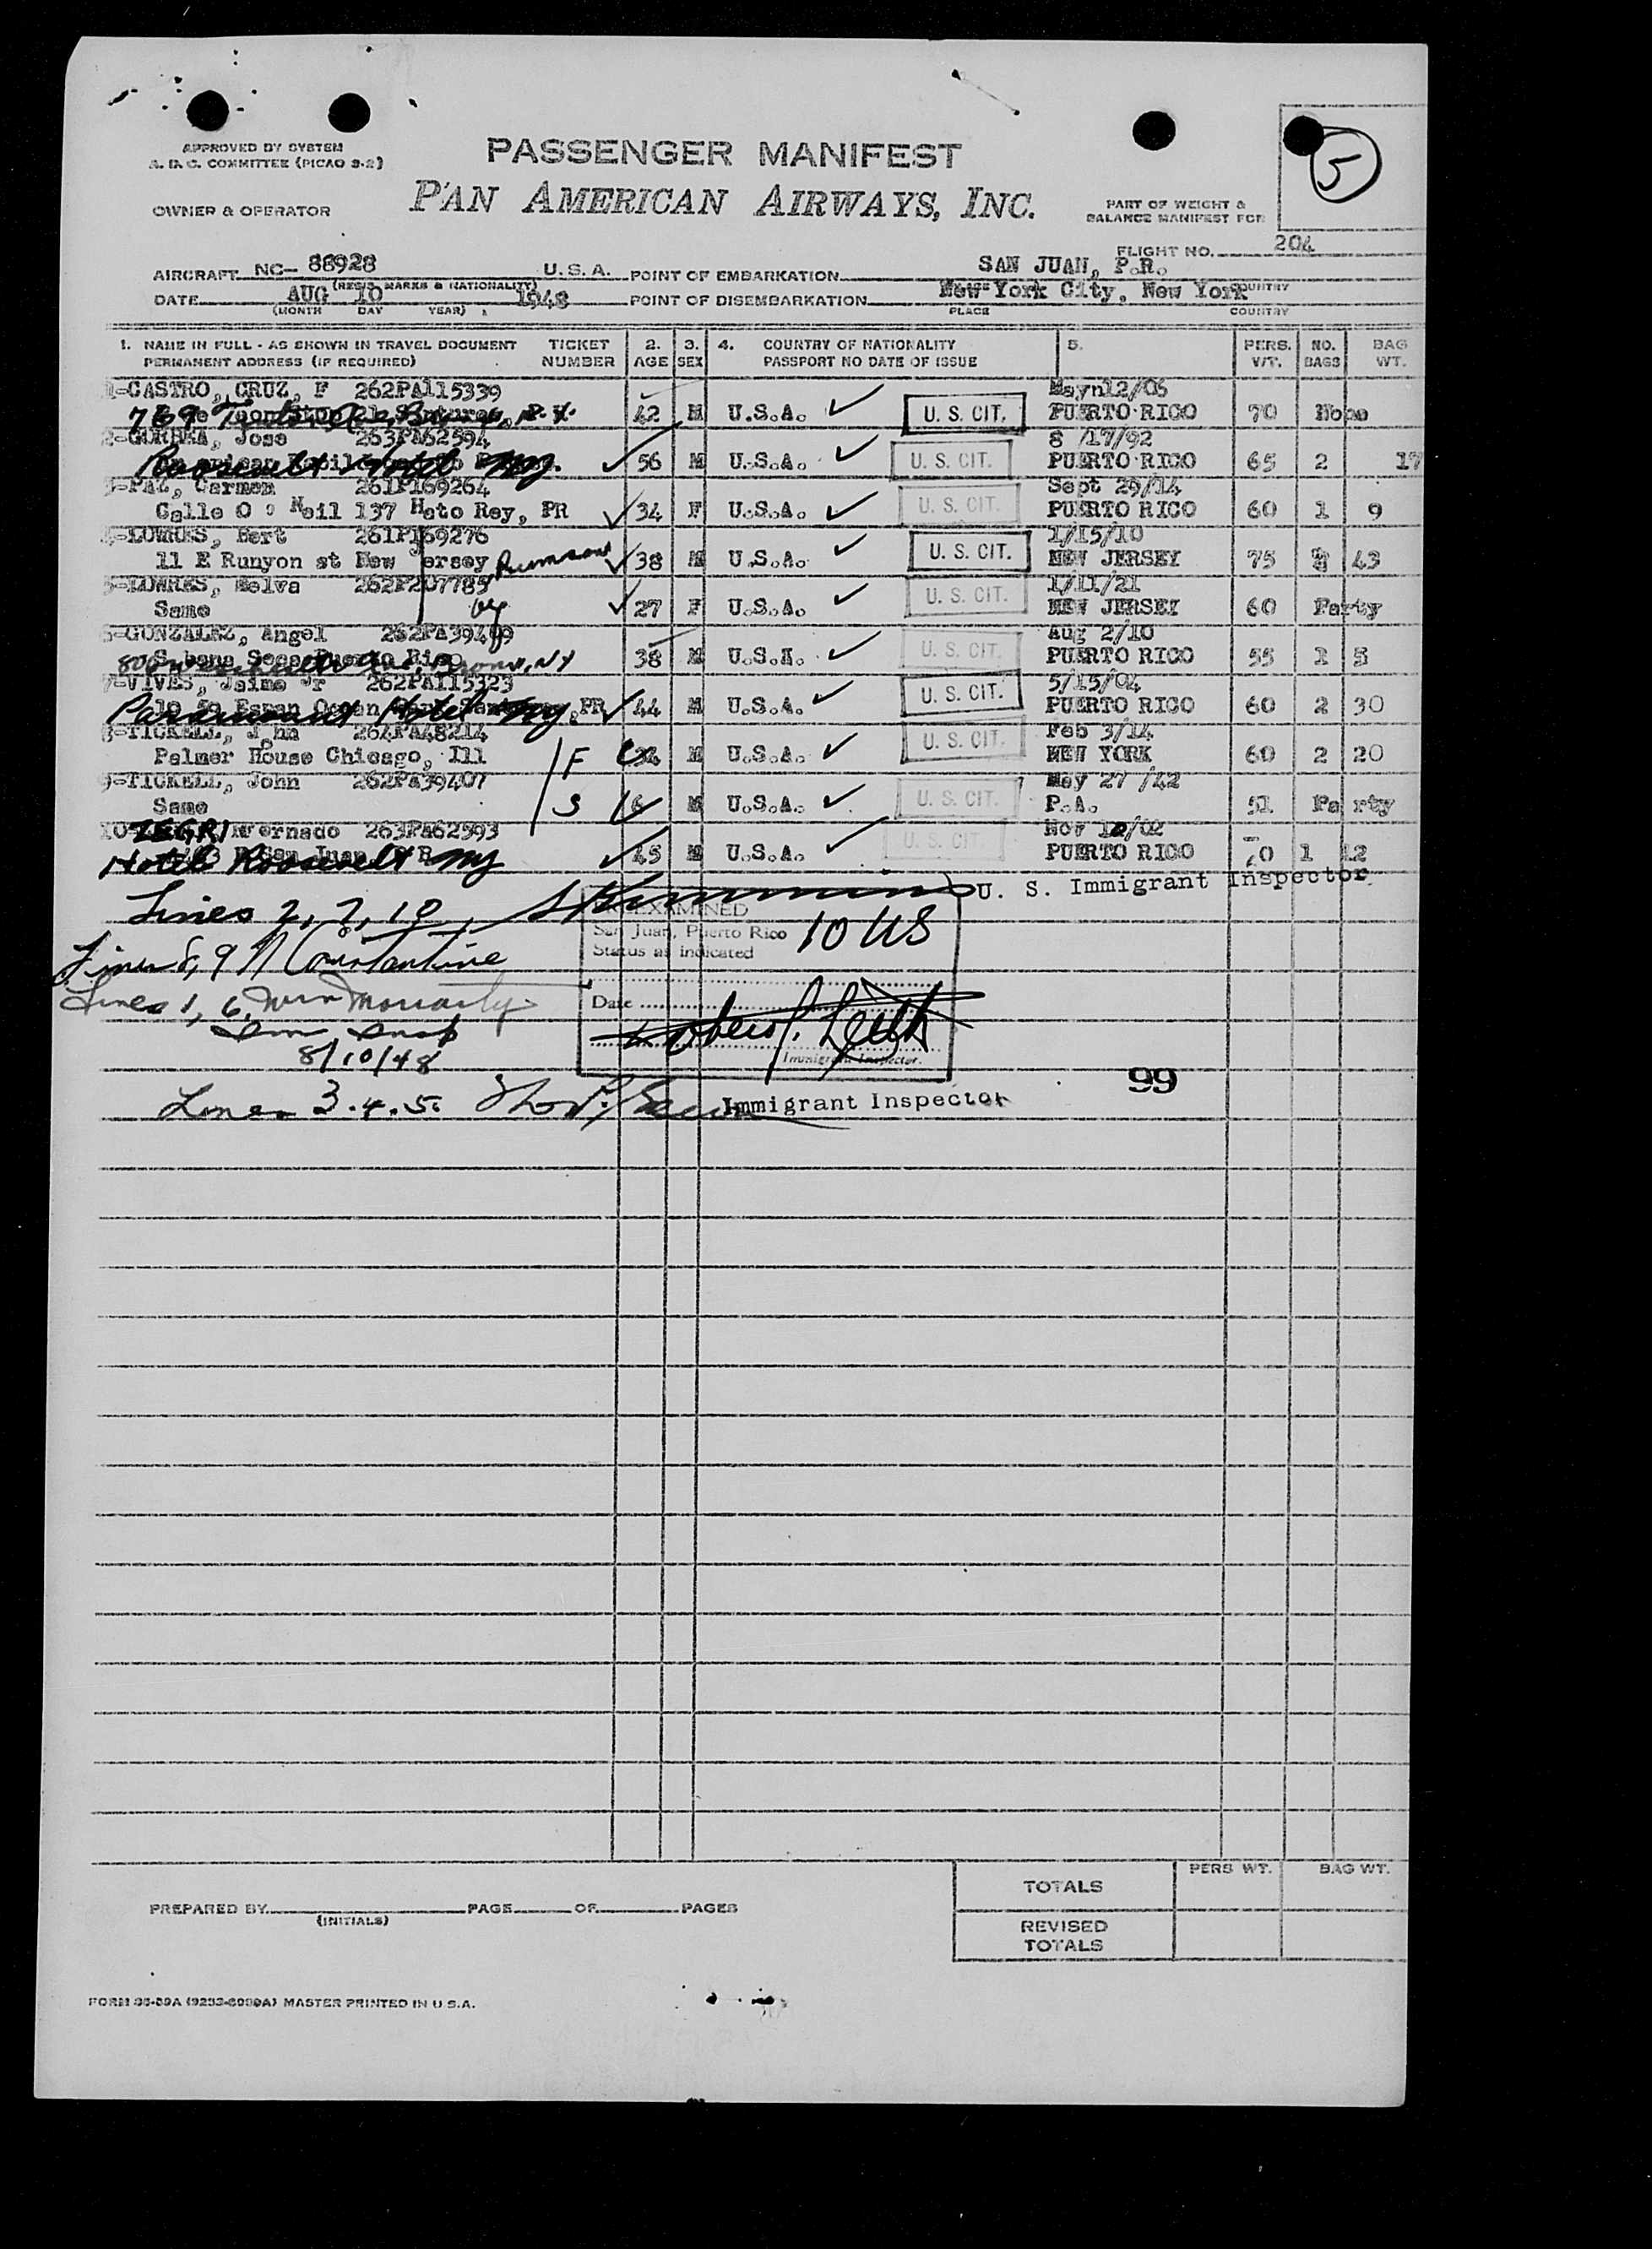 APPROVED BY SYSTEM
A. D. C. COMMITTEE (PICAO S-2)
PASSENGER MANIFEST
PAN AMERICAN AIRWAYS, INC.
OWNER & OPERATOR
PART OF WEIGHT &
BALANCE MANIFEST FOR
5
FLIGHT NO. 204
AIRCRAFT NC- 88928 U.S.A. POINT OF EMBARKATION SAN JUAN, P.R.
(REG'S MARKS & NATIONALITY)
DATE AUG 10 1948 POINT OF DISEMBARKATION New York City, New York
(MONTH DAY YEAR) PLACE COUNTRY
1. NAME IN FULL - AS SHOWN IN TRAVEL DOCUMENT TICKET 2. 3. 4. COUNTRY OF NATIONALITY 5. PERS. NO. BAG
PERMANENT ADDRESS (IF REQUIRED) NUMBER AGE SEX PASSPORT NO DATE OF ISSUE WT. BAGS WT.
1-CASTRO, CRUZ, F 262PA115339 12/06
769 42 M U.S.A. U. S. CIT. PUERTO RICO 70 None
2- Jose 263PA62594 8 /17/92
Roosevelt Hotel NY. 56 M U.S.A. U. S. CIT. PUERTO RICO 65 2 17
3-PAZ, Carmen 261P169264 Sept 29/14
Calle O'Neil 137 Hato Rey, PR 34 F U.S.A. U. S. CIT. PUERTO RICO 60 1 9
4- Bert 261P169276 1/15/10
11 E Runyon st New Jersey Rumson 38 M U.S.A. U. S. CIT. NEW JERSEY 75 43
5- Melva 262P207785 1/11/21
Same 27 F U.S.A. U. S. CIT. NEW JERSEY 60 Party
6-GONZALEZ, Angel 262PA39409 Aug 2/10
Bronx, NY 38 M U.S.A. U. S. CIT. PUERTO RICO 55 1 5
7-VIVES, Jaime Jr 262PA115323 5/15/04
Paramount Hotel NY, PR 44 M U.S.A. U. S. CIT. PUERTO RICO 60 2 30
8-TICKELL, John 264PA48214 Feb 3/14
Palmer House Chicago, Ill F 34 M U.S.A. U. S. CIT. NEW YORK 60 2 20
9-TICKELL, John 262PA39407 May 27 /42
Same S 6 M U.S.A. U. S. CIT. P.A. 51 Party
10-ZEGRI 263PA62593 Nov /02
Hotel Roosevelt NY 45 M U.S.A. U. S. CIT. PUERTO RICO 70 1 12
Lines 2, 7, 10, U. S. Immigrant Inspector
EXAMINED
San Juan, Puerto Rico 10 US
Status as indicated
Lines 8, 9 N Constantine
Lines 1, 6, Wm Moriarty
Imm Insp
8/10/48
Date
Immigrant Inspector.
99
Lines 3.4.5. Immigrant Inspector
PERS WT. BAG WT.
TOTALS
PREPARED BY PAGE OF PAGES
(INITIALS)
REVISED
TOTALS
MASTER PRINTED IN U.S.A.